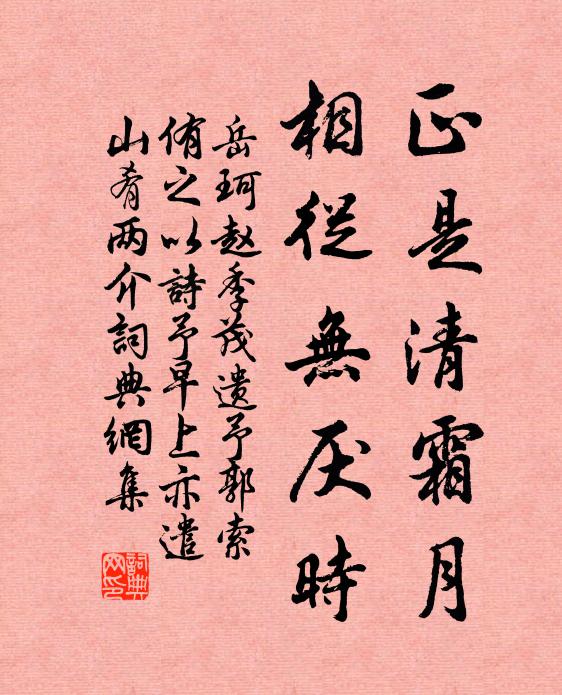 正是清霜月
相從無厌時
岳珂赵季茂遗予郭索
侑之以詩予早上亦遣
山肴两介詞典網集
詞典网印